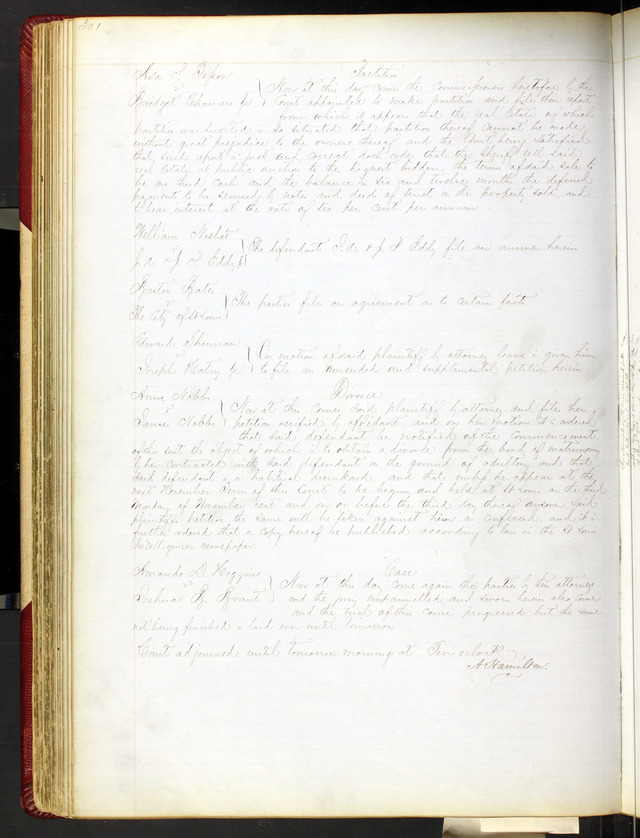 301
Asa S. Jepson Partition
vs
Bridget Chouvin &c } Now at this day come the Commissioners heretofore by the
Court appointed to make partition and file their report
from which it appears that the real estate of which
partition was directed is so situated that partition thereof cannot be made
without great prejudice to the owners thereof and the Court being satisfied
that such report is just and correct doth order that the Sheriff sell said
real estate at public auction to the highest bidder. The terms of said sale to
be one third cash and the balance in six and twelve months the deferred
payments to be secured by notes and deed of trust on the property sold, and
to bear interest at the rate of six per cent per annum
William Nisbet
vs
J. de & J. F. Eddy &c } The defendants J. de & J. F. Eddy file an answer herein
Barton Bates
vs
The City of St Louis } The parties file an agreement as to certain facts
Edward Shennan
vs
Joseph Hatry &c } On motion of said plaintiff by attorney leave is given him
to file an amended and supplemental petition herein
Anne Noble Divorce
vs
James Noble } Now at this comes said plaintiff by attorney and files her
petition verified by affidavit and on her motion it is ordered
that said defendant be notified of the commencement
of this suit the object of which is to obtain a divorce from the bonds of matrimony
by her contracted with said defendant on the ground of adultery and that
said defendant is a habitual drunkard, and that unless he appear at the
next November Term of this Court to be begun and held at St Louis on the third
Monday of November next and on or before the third day thereof answer said
plaintiffs petition the same will be taken against him as confessed, and it is
further ordered that a copy hereof be published according to law in the St Louis
Intelligencer newspaper.
Amanda D. Higgins Case
vs
Joshua B. Brant } Now at this day come again the parties by their attorneys
and the jury empannelled and sworn herein also come
and the trial of this cause progressed but the same
not being finished is laid over until tomorrow
Court adjourned until tomorrow morning at Ten oclock
A. Hamilton.